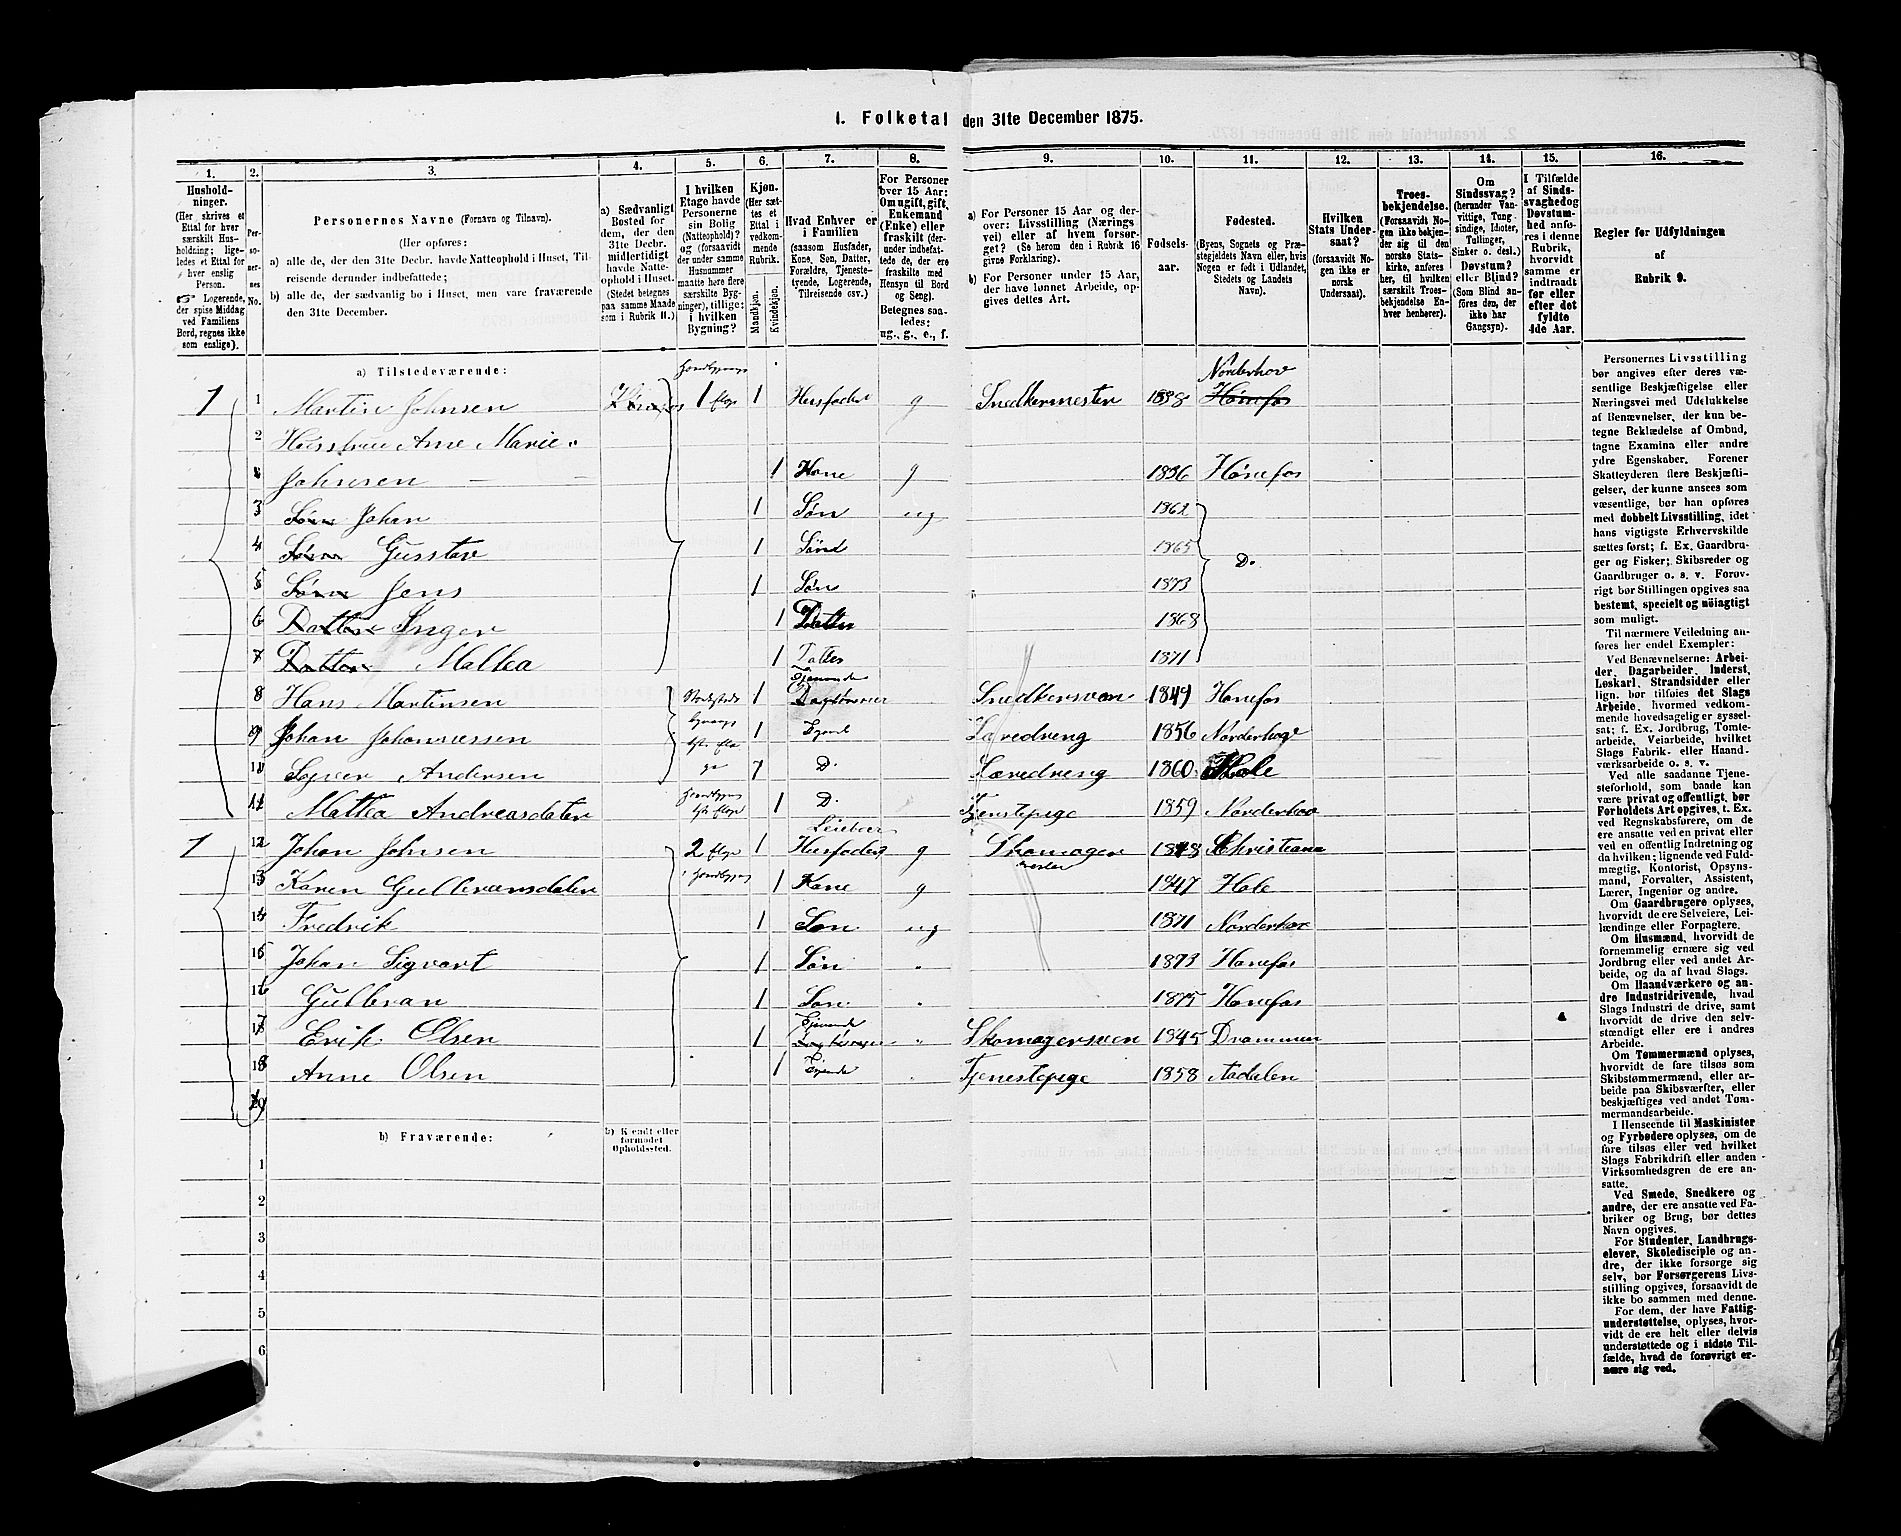 1. Folketal den 31te December 1875.
1. 2. 3. 4. 5. 6. 7. 8. 9. 10. 11. 12. 13. 14. 15. 16.
Husholdninger. (Her skrives et Ettal for hver særskilt Husholdning; ligeledes et Ettal for hver enslig Person. Logerende, der spise Middag ved Familiens Bord, regnes ikke som enslige).
Personernes No.
Personernes Navne (Fornavn og Tilnavn).
(Her opføres:
a) alle de, der den 31te Decbr. havde Natteophold i Huset, Tilreisende derunder indbefattede;
b) alle de, der sædvanlig bo i Huset, men vare fraværende den 31te December.
a) Sædvanligt Bosted for dem, der den 31te Decbr. midlertidigt havde Natteophold i Huset. (Stedet betegnes paa samme Maade som i Rubrik 11.)
I hvilken Etage havde Personerne sin Bolig (Natteophold)? og (forsaavidt der under samme Husnummer maatte høre flere særskilte Bygninger), tillige: i hvilken Bygning?
Kjøn. (Her sættes et Ettal i vedkommende Rubrik.
Mandkjøn. Kvindekjøn.
Hvad Enhver er i Familien (saasom Husfader, Kone, Søn, Datter, Forældre, Tjenestetyende, Logerende, Tilreisende osv.)
For Personer over 15 Aar: Om ugift, gift, Enkemand (Enke) eller fraskilt (derunder indbefattede de, der ere fraskilte med Hensyn til Bord og Seng). Betegnes saaledes: ug., g., e., f.
a) For Personer 15 Aar og derover: Livsstilling (Næringsvei) eller af hvem forsørget? (Se herom den i Rubrik 16 givne Forklaring).
b) For Personer under 15 Aar, der have lønnet Arbeide, opgives dettes Art.
Fødselsaar.
Fødested. (Byens, Sognets og Præstegjeldets Navn eller, hvis Nogen er født i Udlandet, Stedets og Landets Navn).
Hvilken Stats Undersaat? (forsaavidt Nogen ikke er norsk Undersaat).
Troesbekjendelse. (Forsaavidt Nogen ikke bekjender sig til den norske Statskirke, anføres her, til hvilken særskilt Troesbekjendelse Enhver henhører).
Om Sindssvag? (herunder Vanvittige, Tungsindige, Idioter, Tullinger, Sinker o. desl.) Døvstum? eller Blind? (Som Blind anføres den, der ikke har Gangsyn).
I Tilfælde af Sindssvaghed og Døvstumhed anføres i denne Rubrik, hvorvidt samme er indtraadt før eller efter det fyldte 4de Aar.
Regler for Udfyldningen af Rubrik 9.
a) Tilstedeværende:
1 1 Martin Johnsen 1 Etage 1 Husfader g Snedkermester 1838 Norderhov Hønefos
2 Husstrue Ane Marie
Johnsen 1 Kone g 1836 Hønefos
3 Søn Johan 1 Søn ug 1862
4 Søn Gusstav 1 Sønd 1865 D.
5 Søn Jens 1 Søn 1873
6 Datter Inger 1 Datter 1868
7 Datter Mathea 1 Datter 1871
8 Hans Martinsen 1 Tjenende Snedkersven 1849 Hønefos
9 Johan Johannessen 1 Tjend Læredreng 1856 Norderhov
Syver Andersen 1 D. Læredreng 1860 Hole
11 Mathea Andreasdater 1 D. Tjenstepige 1859 Norderhov
1 12 Johan Johnsen 2 Etage 1 Leieboer Husfader g Skomager mester 1848 Christiana
13 Karen Gulbransdater 1 Kone g 1847 Hole
14 Fredrik 1 Søn ug 1871 Norderhov
15 Johan Sigvart 1 Søn " 1873 Hønefos
16 Gulbran 1 Søn " 1875 Hønefos
17 Erik Olsen 1 Tjenende Logerende " Skomagersven 1845 Drammen
18 Anne Olsen 1 Tjende Tjenestepige 1858 Aadalen
b) Fraværende:
b) Kjendt eller formodet Opholdssted.
1
2
3
4
5
6
Personernes Livsstilling bør angives efter deres væsentlige Beskjæftigelse eller Næringsvei med Udelukkelse af Benævnelser, der kun betegne Beklædelse af Ombud, tagne Examina eller andre ydre Egenskaber. Forener Skatteyderen flere Beskjæftigelser, der kunne ansees som væsentlige, bør han opføres med dobbelt Livsstilling, idet hans vigtigste Erhvervskilde sættes først; f. Ex. Gaardbruger og Fisker; Skibsreder og Gaardbruger o. s. v. Forøvrigt bør Stillingen opgives saa bestemt, specielt og nöiagtigt som muligt.
Til nærmere Veiledning anføres her endel Exempler:
Ved Benævnelserne: Arbeider, Dagarbeider, Inderst, Løskarl, Strandsidder eller lign. bør tilføies det Slags Arbeide, hvormed vedkommende hovedsagelig er sysselsat; f. Ex. Jordbrug, Tomtearbeide, Veiarbeide, hvilket Slags Fabrik- eller Haandværksarbeide o. s. v.
Ved alle saadanne Tjenesteforhold, som baade kan være privat og offentligt, bør Forholdets Art opgives, t. Ex. ved Regnskabsførere, om de ere ansatte ved en privat eller ved en offentlig Indretning og da hvilken; lignende ved Fuldmægtig, Kontorist, Opsynsmand, Forvalter, Assistent, Lærer, Ingeniør og andre.
Om Gaardbrugere oplyses, hvorvidt de ere Selveiere, Leilændinge eller Forpagtere.
Om Husmænd, hvorvidt de fornemmelig ernære sig ved Jordbrug eller ved andet Arbeide, og da af hvad Slags.
Om Haandværkere og andre Industridrivende, hvad Slags Industri de drive, samt hvorvidt de drive den selvstændigt eller ere i andres Arbeide.
Om Tømmermænd oplyses, hvorvidt de fare tilsøs som Skibstømmermænd, eller arbeide paa Skibsværfter, eller beskjæftiges ved andet Tømmermandsarbeide.
I Henseende til Maskinister og Fyrbødere oplyses, om de fare tilsøs eller ved hvilket Slags Fabrikdrift eller anden Virksomhedsgren de ere ansatte.
Ved Smede, Snedkere og andre, der ere ansatte ved Fabriker og Brug, bør dettes Navn opgives.
For Studenter, Landbrugselever, Skoledisciple og andre, der ikke forsørge sig selv, bør Forsørgerens Livsstilling opgives, forsaavidt de ikke bo sammen med denne.
For dem, der have Fattigunderstøttelse, oplyses, hvorvidt de ere helt eller delvis understøttede og i sidste Tilfælde, hvad de forøvrigt ernære sig ved.